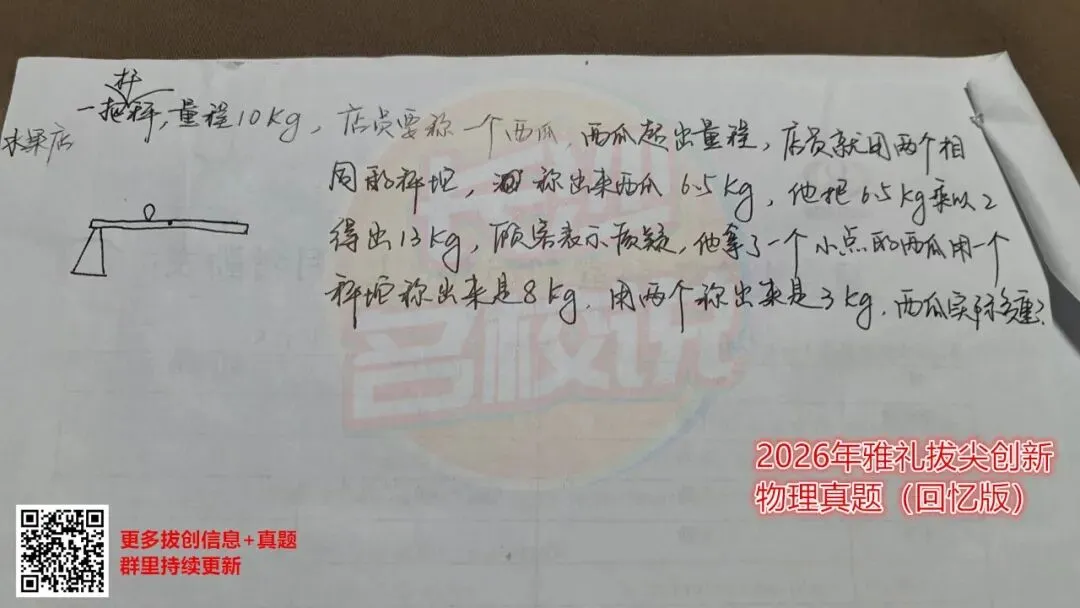 杆
一把秤,量程10kg,店员要称一个西瓜,西瓜超出量程,店员就用两个相
水果店
同的秤坨,称出来西瓜6.5kg,他把6.5kg乘以2
得出13kg,顾客表示质疑,他拿了一个小点的西瓜用一个
秤坨称出来是8kg.用两个称出来是3kg,西瓜实际多重?
名校说
2026年雅礼拔尖创新
物理真题(回忆版)
更多拔创信息+真题
群里持续更新